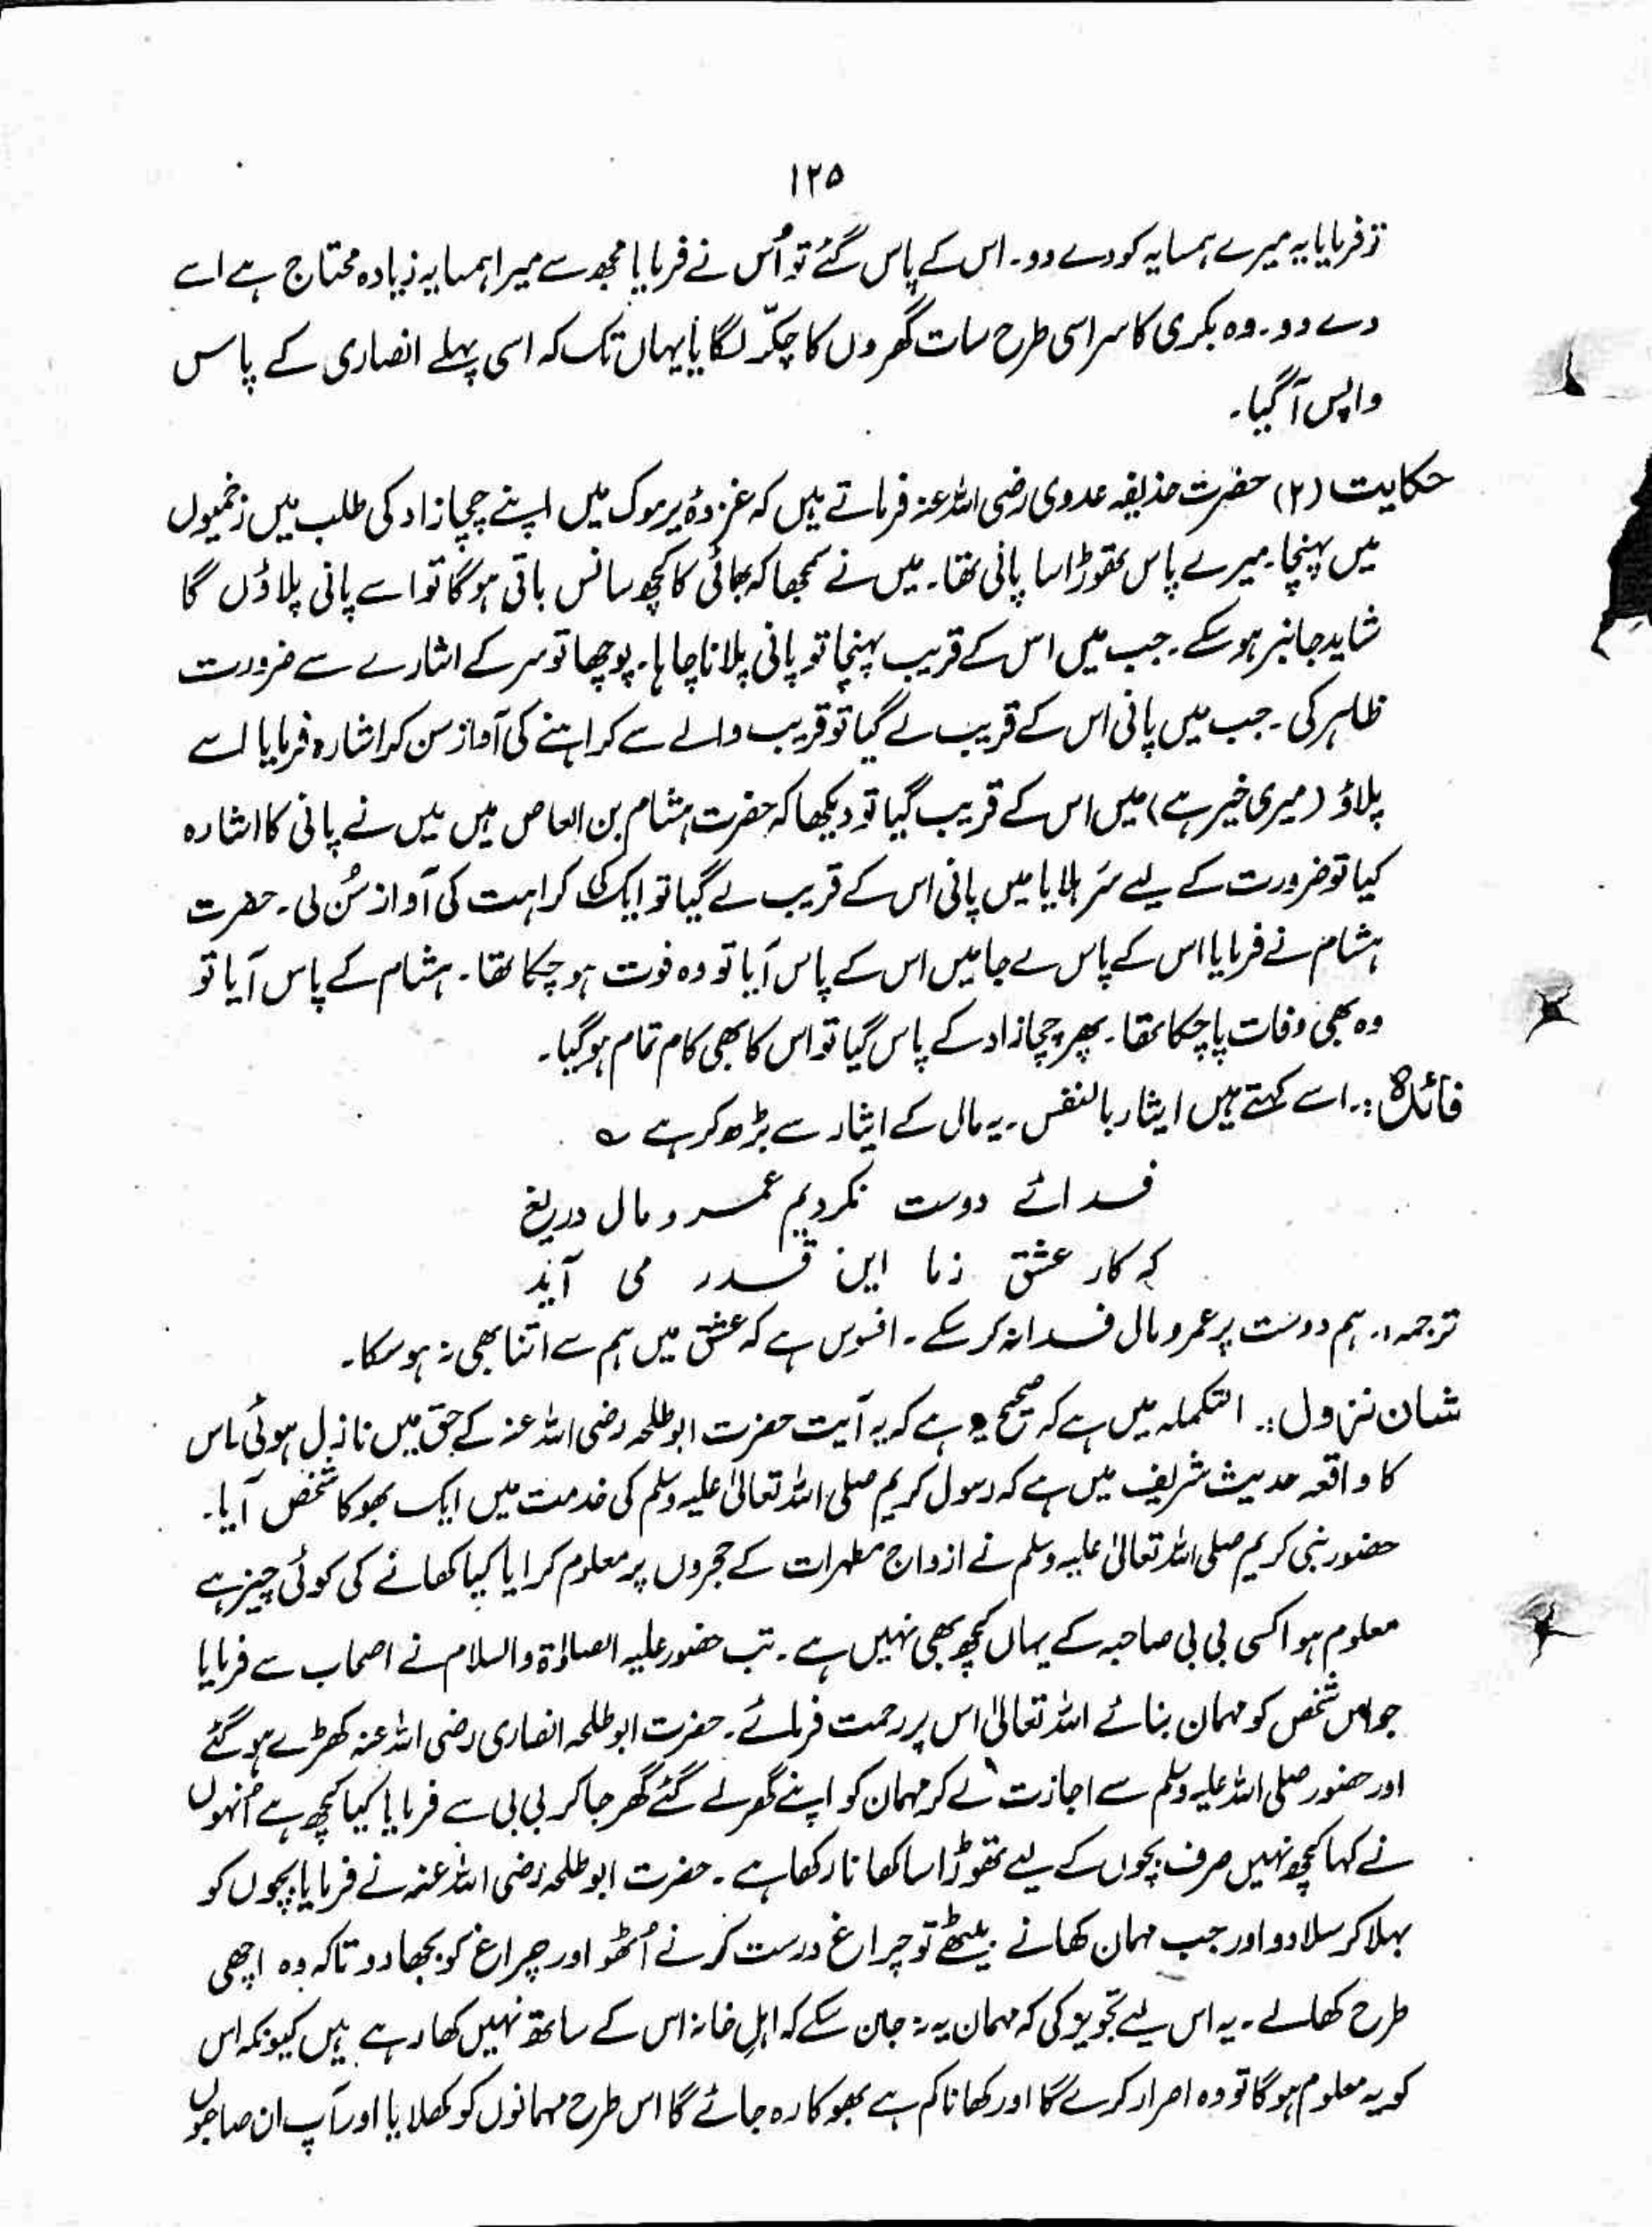 ۱۲۵
تو فرمایا یہ میرے ہمسایہ کو دے دو۔ اس کے پاس گئے تو اُس نے فرمایا مجھ سے میرا ہمسایہ زیادہ محتاج ہے اسے
دے دو۔ وہ بکری کا سر اسی طرح سات گھروں کا چکّر لگایا یہاں تک کہ اسی پہلے انصاری کے پاس
واپس آگیا۔
حکایت (۲) حضرت حذیفہ عدوی رضی اللہ عنہ فرماتے ہیں کہ غزوۂ یرموک میں اپنے چچازاد کی طلب میں زخمیوں
میں پہنچا۔ میرے پاس تھوڑا سا پانی تھا۔ میں نے سمجھا کہ بھائی کا کچھ سانس باقی ہوگا تو اسے پانی پلاؤں گا
شاید جانبر ہو سکے۔ جب میں اس کے قریب پہنچا تو پانی پلانا چاہا۔ پوچھا تو سر کے اشارے سے ضرورت
ظاہر کی۔ جب میں پانی اس کے قریب لے گیا تو قریب والے سے کراہنے کی آواز سن کر اشارہ فرمایا اسے
پلاؤ (میری خیر ہے) میں اس کے قریب گیا تو دیکھا کہ حضرت ہشام بن العاص ہیں میں نے پانی کا اشارہ
کیا تو ضرورت کے لیے سَر ہلایا میں پانی اس کے قریب لے گیا تو ایک کی کراہت کی آواز سُن لی۔ حضرت
ہشام نے فرمایا اس کے پاس لے جا میں اس کے پاس آیا تو وہ فوت ہو چکا تھا۔ ہشام کے پاس آیا تو
وہ بھی وفات پا چکا تھا۔ پھر چچازاد کے پاس گیا تو اس کا بھی کام تمام ہوگیا۔
فائدہ :۔ اسے کہتے ہیں ایثار بالنفس۔ یہ مال کے ایثار سے بڑھ کر ہے ؎
فدائے دوست نکردیم عمر و مال دریغ
کہ کار عشق زما این قدر می آید
ترجمہ :۔ ہم دوست پر عمر و مال فدا نہ کر سکے۔ افسوس ہے کہ عشق میں ہم سے اتنا بھی نہ ہو سکا۔
شان نزول :۔ التکملہ میں ہے کہ صحیح یہ ہے کہ یہ آیت حضرت ابوطلحہ رضی اللہ عنہ کے حق میں نازل ہوئی اس
کا واقعہ حدیث شریف میں ہے کہ رسول کریم صلی اللہ تعالیٰ علیہ وسلم کی خدمت میں ایک بھوکا شخص آیا۔
حضور نبی کریم صلی اللہ تعالیٰ علیہ وسلم نے ازواج مطہرات کے حجروں پر معلوم کرایا کیا کھانے کی کوئی چیز ہے
معلوم ہوا کسی بی بی صاحبہ کے یہاں کچھ بھی نہیں ہے۔ تب حضور علیہ الصلوٰۃ والسلام نے اصحاب سے فرمایا
جو اس شخص کو مہمان بنائے اللہ تعالیٰ اس پر رحمت فرمائے۔ حضرت ابوطلحہ انصاری رضی اللہ عنہ کھڑے ہو گئے
اور حضور صلی اللہ علیہ وسلم سے اجازت لے کر مہمان کو اپنے گھر لے گئے گھر جاکر بی بی سے فرمایا کیا کچھ ہے اُنہوں
نے کہا کچھ نہیں صرف بچوں کے لیے تھوڑا سا کھانا رکھا ہے۔ حضرت ابوطلحہ رضی اللہ عنہ نے فرمایا بچوں کو
بہلا کر سلا دو اور جب مہمان کھانے بیٹھے تو چراغ درست کرنے اُٹھو اور چراغ کو بجھا دو تاکہ وہ اچھی
طرح کھالے۔ یہ اس لیے تجویز کی کہ مہمان یہ نہ جان سکے کہ اہلِ خانہ اس کے ساتھ نہیں کھا رہے ہیں کیونکہ اس
کو یہ معلوم ہوگا تو وہ اصرار کرے گا اور کھانا کم ہے بھوکا رہ جائے گا اس طرح مہمانوں کو کھلایا اور آپ ان صاحبوں